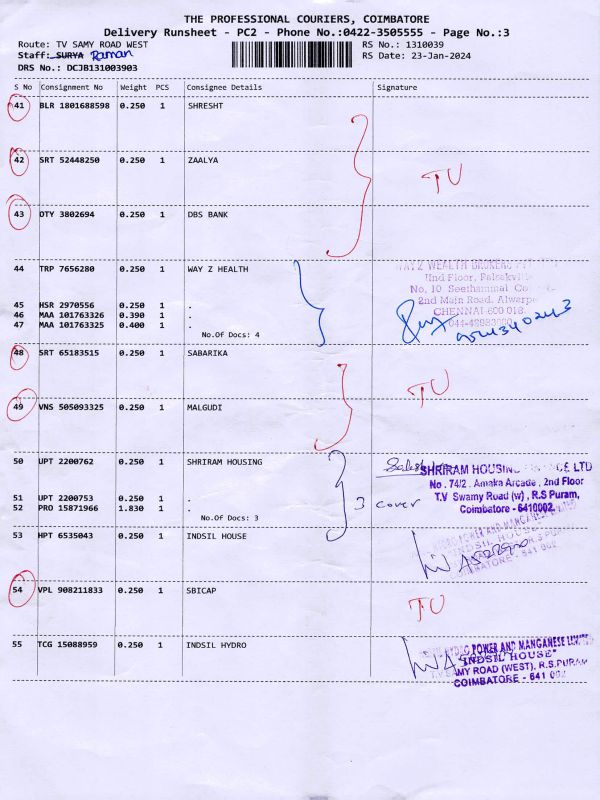 THE PROFESSIONAL COURIERS, COIMBATORE
Delivery Runsheet - PC2 - Phone No.:0422-3505555 - Page No.:3
Route: TV SAMY ROAD WEST RS No.: 1310039
Staff: SURYA Raman RS Date: 23-Jan-2024
DRS No.: DCJB131003903
S No Consignment No Weight PCS Consignee Details Signature
41 BLR 1801688598 0.250 1 SHRESHT
42 SRT 52448250 0.250 1 ZAALYA
TU
43 OTY 3802694 0.250 1 DBS BANK
44 TRP 7656280 0.250 1 WAY Z HEALTH
WAY Z WEALTH BROKERS
IInd Floor,
No, 10 Seethammal
2nd Main Road, Alwarpe
CHENNAI-600 018.
45 HSR 2970556 0.250 1 .
46 MAA 101763326 0.390 1 .
47 MAA 101763325 0.400 1 .
No.Of Docs: 4
48 SRT 65183515 0.250 1 SABARIKA
TU
49 VNS 505093325 0.250 1 MALGUDI
50 UPT 2200762 0.250 1 SHRIRAM HOUSING
SHRIRAM HOUSING FINANCE LTD
No. 74/2, Amaka Arcade, 2nd Floor
T.V Swamy Road (w), R.S Puram,
Coimbatore - 6410002.
51 UPT 2200753 0.250 1 .
52 PRO 15871966 1.830 1 .
3 cover
No.Of Docs: 3
53 HPT 6535043 0.250 1 INDSIL HOUSE
HYDRO POWER AND MANGANESE LIMITED
"INDSIL HOUSE"
R.S.PURAM
COIMBATORE - 641 002
54 VPL 908211833 0.250 1 SBICAP
TU
55 TCG 15088959 0.250 1 INDSIL HYDRO
HYDRO POWER AND MANGANESE LIMITED
"INDSIL HOUSE"
T.V.SAMY ROAD (WEST), R.S.PURAM
COIMBATORE - 641 002